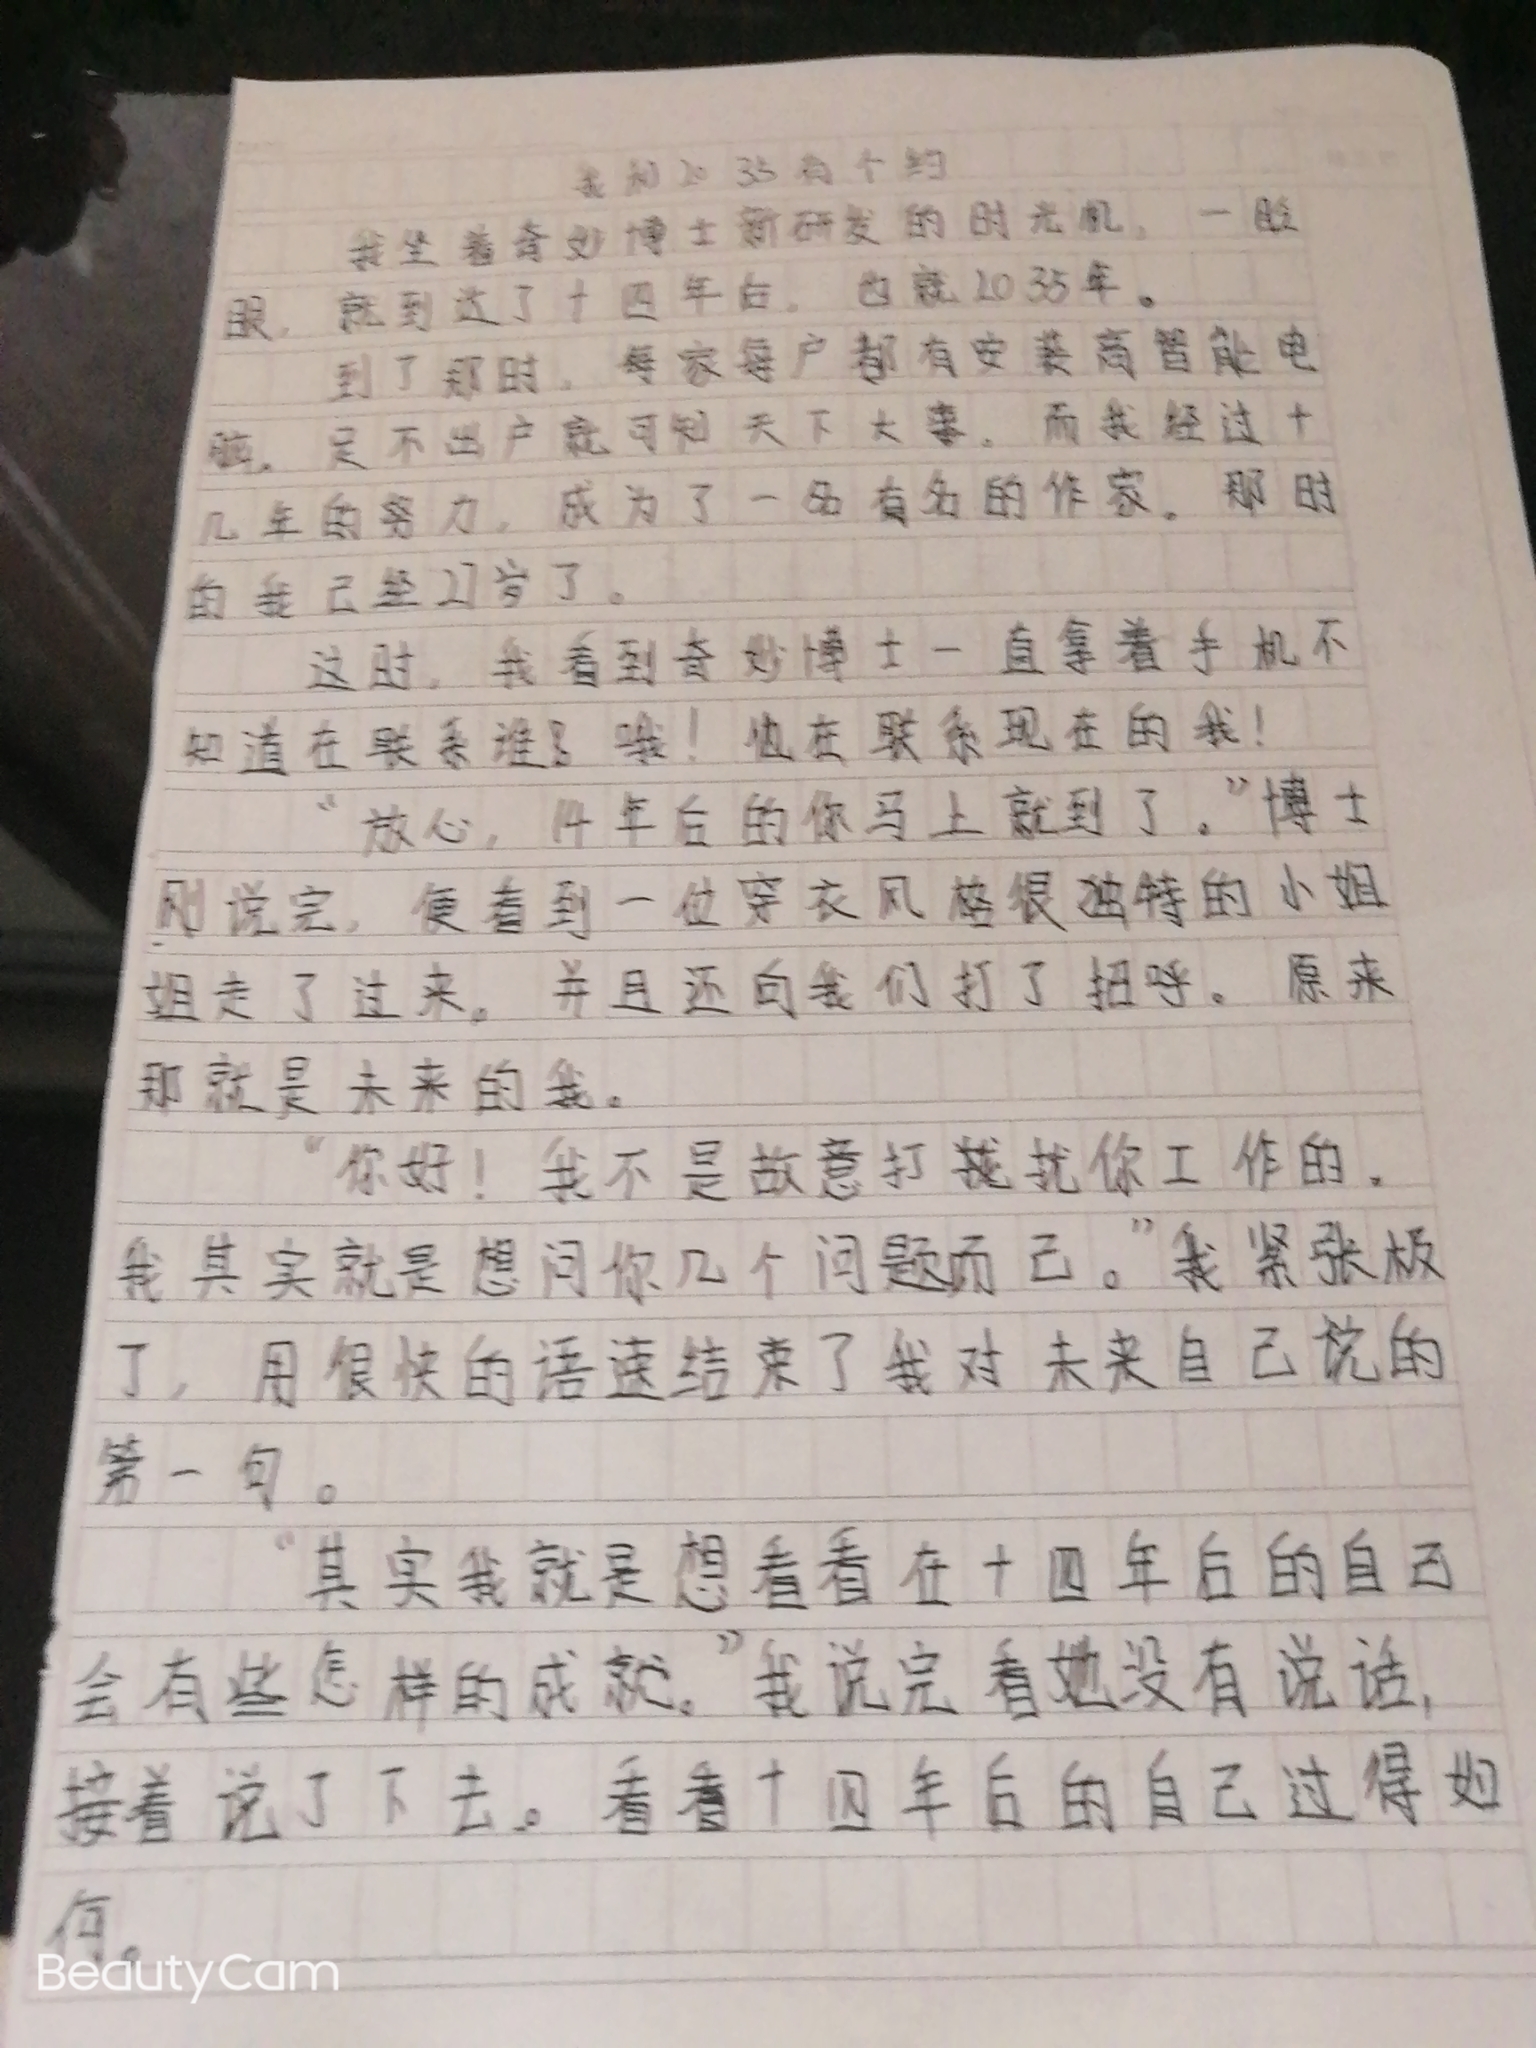 我和2035有个约
我坐着奇妙博士新研发的时光机，一眨
眼，就到达了十四年后，也就2035年。
到了那时，每家每户都有安装高智能电
脑。足不出户就可知天下大事。而我经过十
几年的努力，成为了一名有名的作家。那时
的我已经27岁了。
这时，我看到奇妙博士一直拿着手机不
知道在联系谁？哦！他在联系现在的我！
“放心，14年后的你马上就到了。”博士
刚说完，便看到一位穿衣风格很独特的小姐
姐走了过来。并且还向我们打了招呼。原来
那就是未来的我。
“你好！我不是故意打扰你工作的。
我其实就是想问你几个问题而已。”我紧张极
了，用很快的语速结束了我对未来自己说的
第一句。
“其实我就是想看看在十四年后的自己
会有些怎样的成就。”我说完看她没有说话，
接着说了下去。看看十四年后的自己过得如
何。
BeautyCam